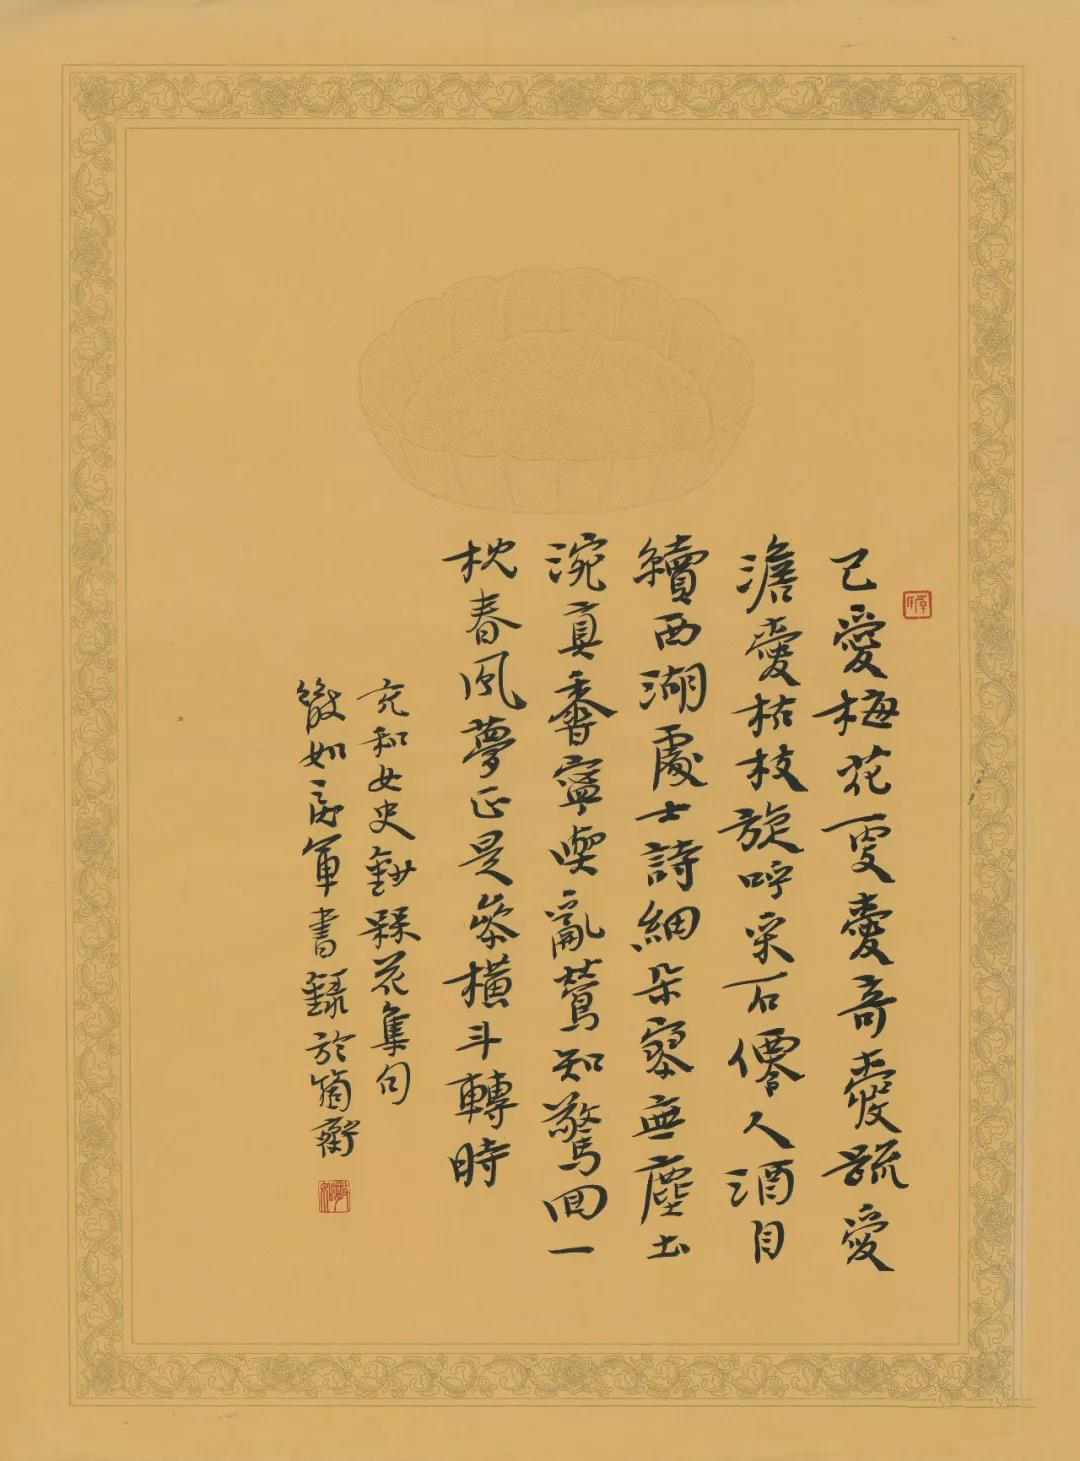 已愛梅花更愛奇愛疏愛
澹愛枯枝旋呼采石僊人酒自
續西湖處士詩細朵無塵土
涴真香寧喫亂鶯知驚回一
枕春風夢正是參橫斗轉時
充和女史鈔槑花集句
如高軍書錄於